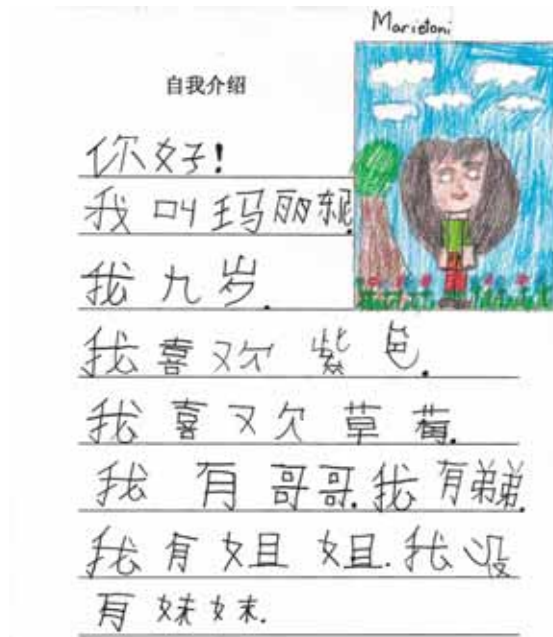 Marietoni
自我介绍
你好!
我叫玛丽轭.
我九岁.
我喜欢紫色.
我喜欢草莓.
我有哥哥.我有弟弟.
我有姐姐.我没
有妹妹.